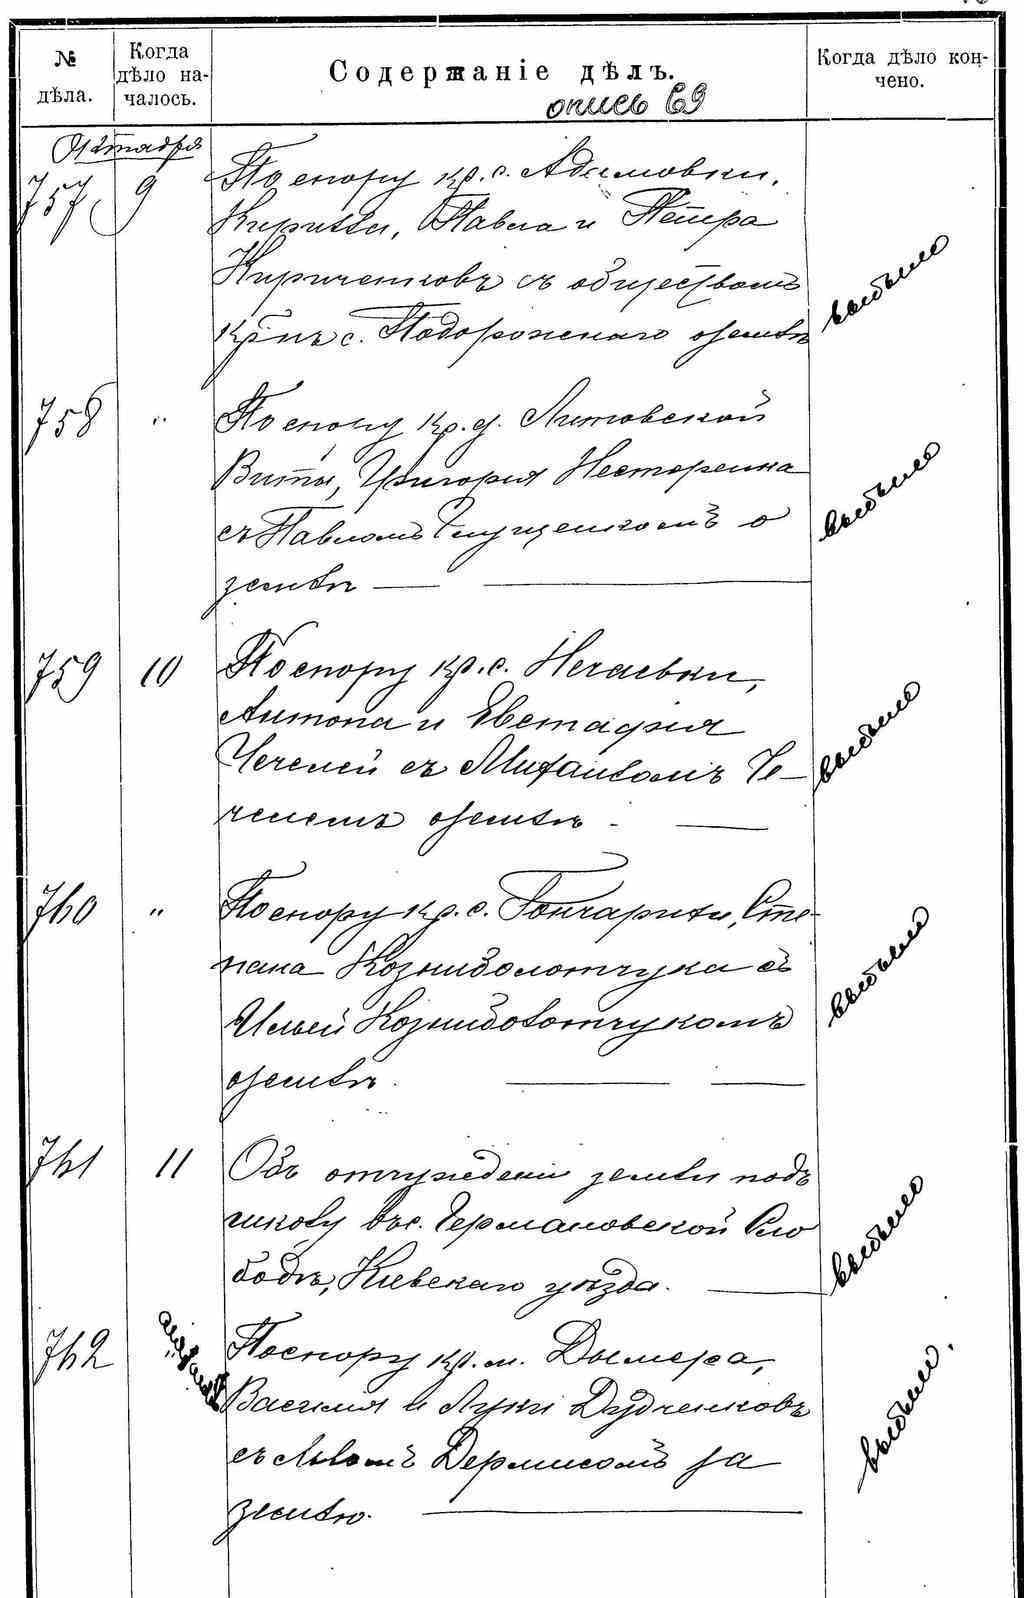 № дѣла.
Когда дѣло началось.
Содержаніе дѣлъ.
Когда дѣло кончено.
опись 69
Октября
757 9 По спору кр. с. Адамовки,
Кирилы, Павла и Петра
Кириченковъ съ обществомъ
кр‑нъ с. Подорожнаго о землѣ
выбыло
758 " По спору кр. д. Литовской
Виты, Григорія Нестеренка
съ Павломъ Глущенкомъ о
землѣ
выбыло
759 10 По спору кр. с. Нечаевки,
Антона и Евстафія
Чечелей съ Михаиломъ Че-
челемъ о землѣ
выбыло
760 " По спору кр. с. Гончарихи, Сте-
пана Козниболотчука съ
Ильей Козниболотчукомъ
о землѣ.
выбыло
761 11 Объ отчужденіи земли подъ
школу въ с. Германовской Сло
бодѣ, Кіевскаго уѣзда.
выбыло
762 " По спору кр. м. Дымера,
Василія и Луки Дудченковъ
съ Львомъ Дермисомъ за
землю.
выбыло.